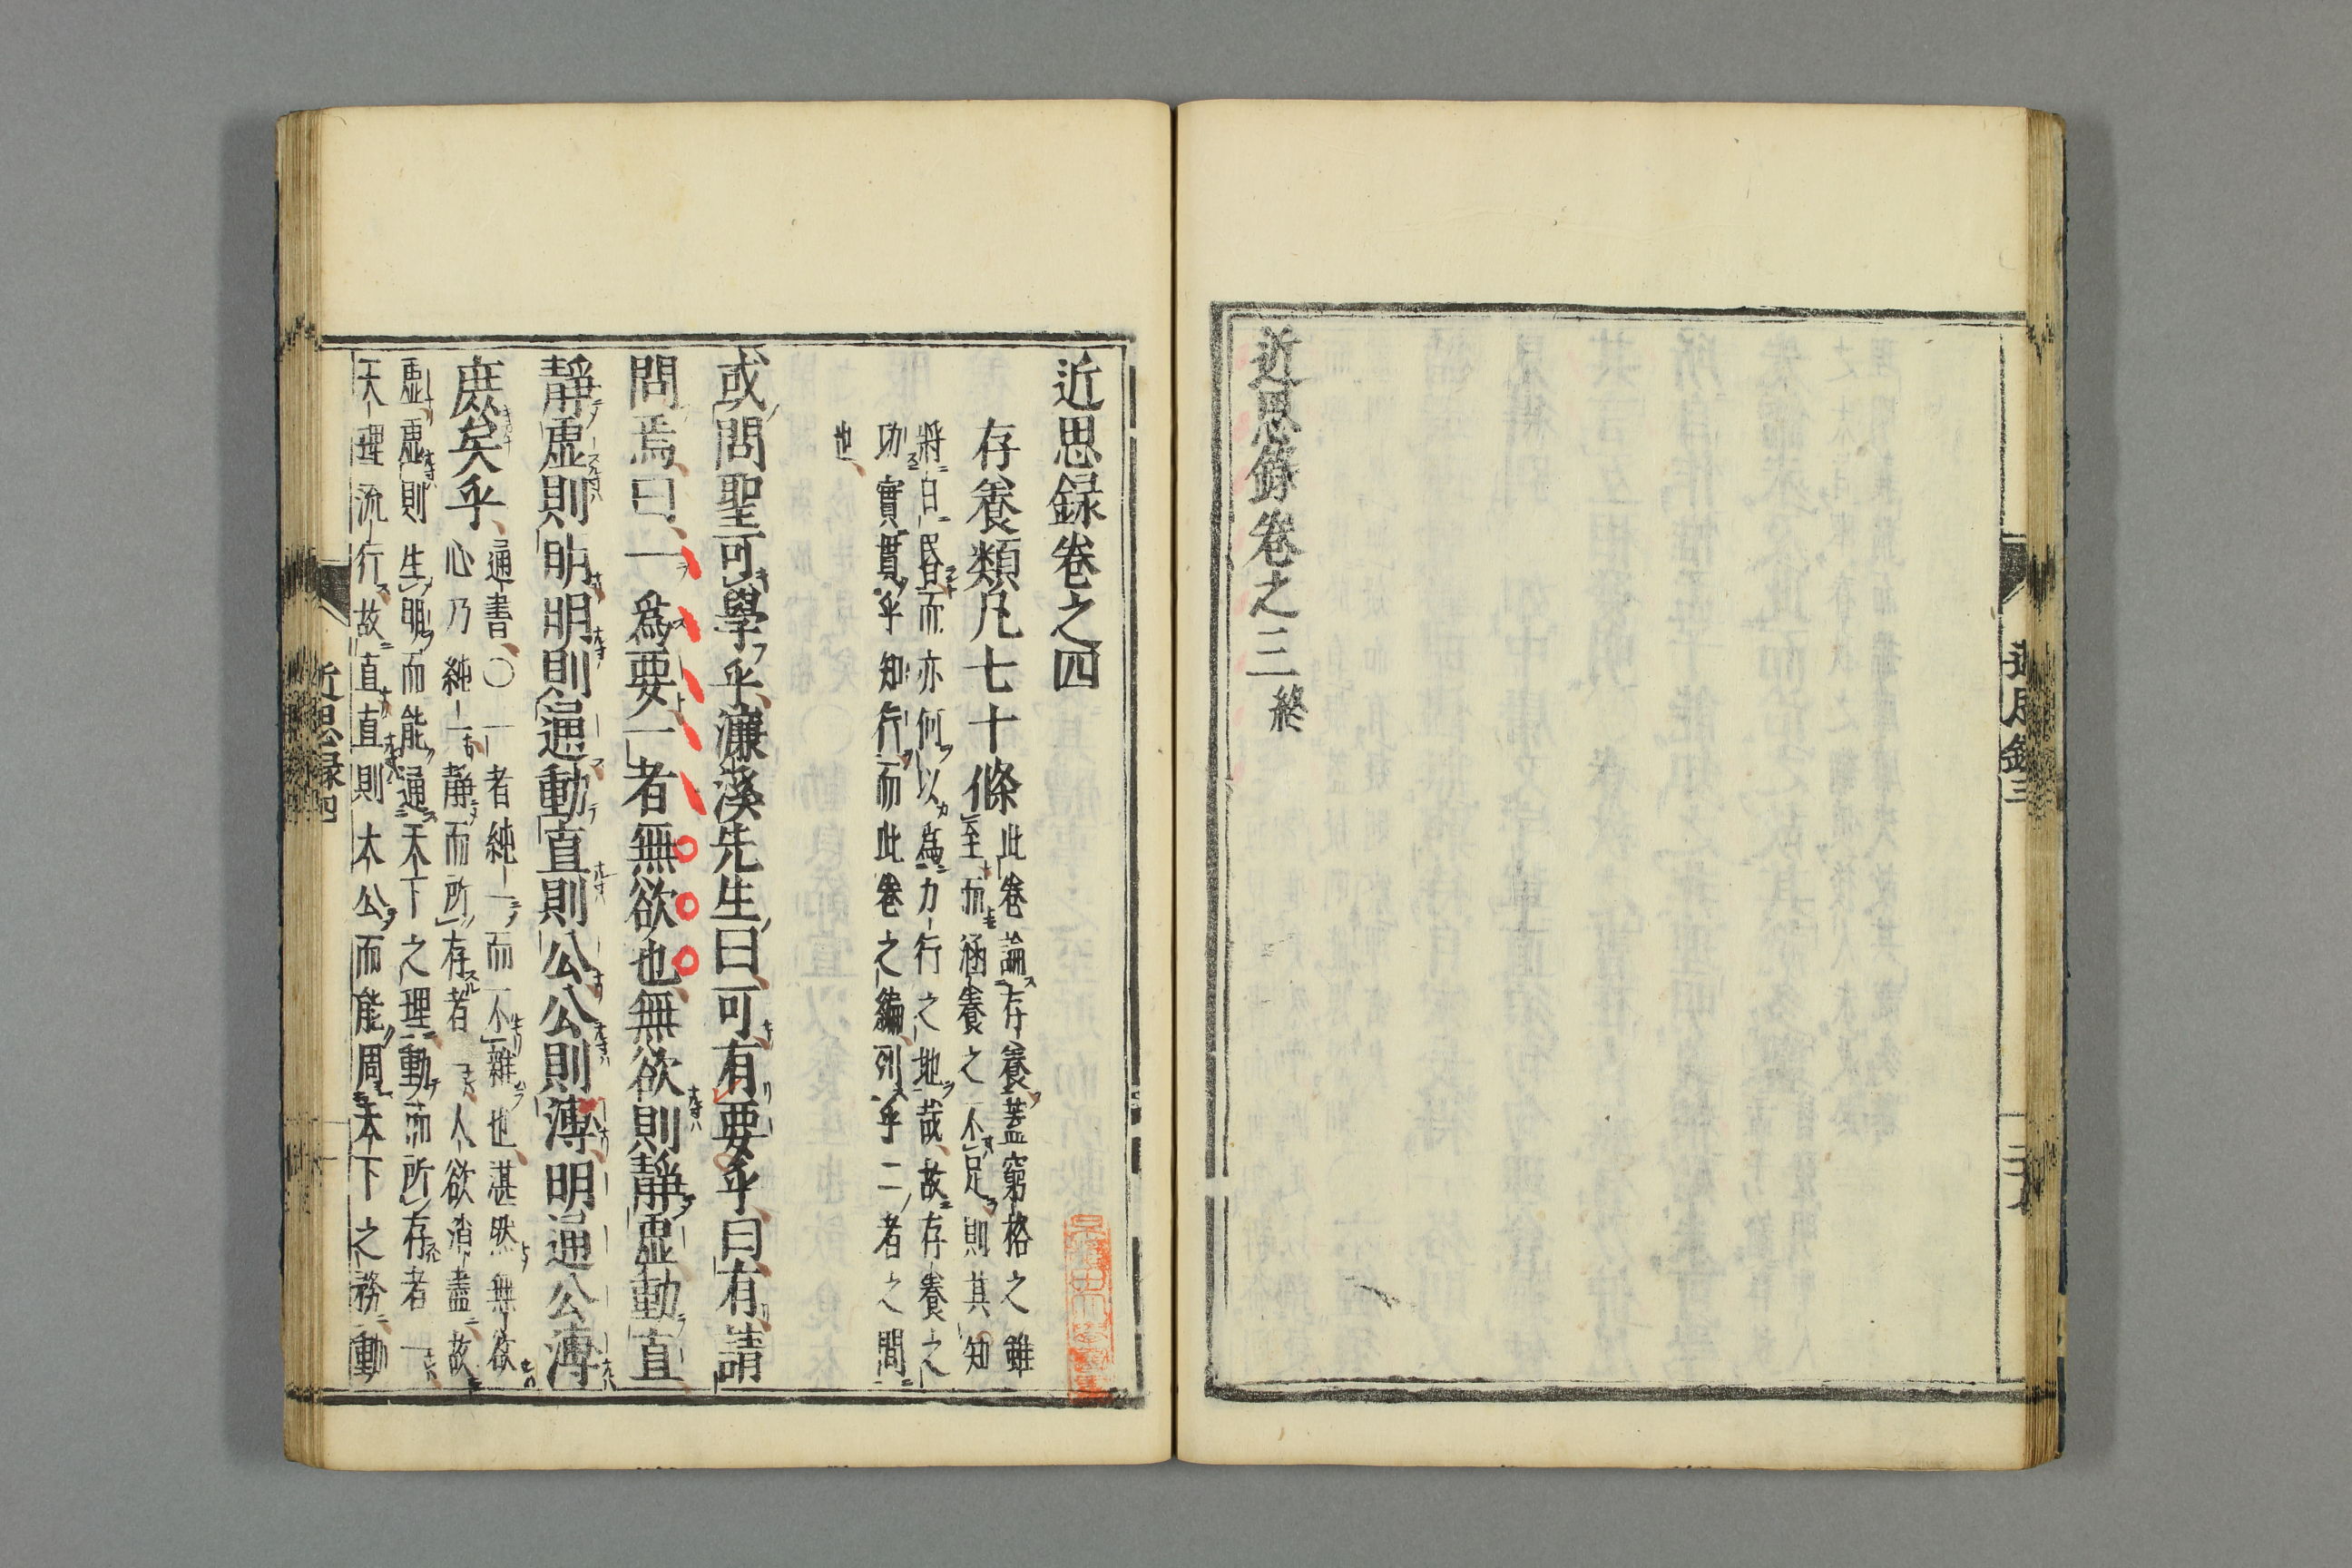 近思錄三
近思錄卷之三終
近思録卷之四
存養類凡七十條此卷論存養蓋窮格之雖
至而涵養之不足則其知
將日昏而亦何以爲力行之地哉故存養之
功實貫乎知行而此卷之編列乎二者之間
也
或問聖可學乎濂溪先生曰可有要乎曰有請
問焉曰一爲要一者無欲也無欲則靜虛動直
靜虛則明明則通動直則公公則溥明通公溥
庶矣乎通書〇一者純一而不雜也湛然無欲
心乃純一靜而所存者一人欲消盡故
虛虛則生明而能通天下之理動而所存者一
天理流行故直直則大公而能周天下之務動
近思録四